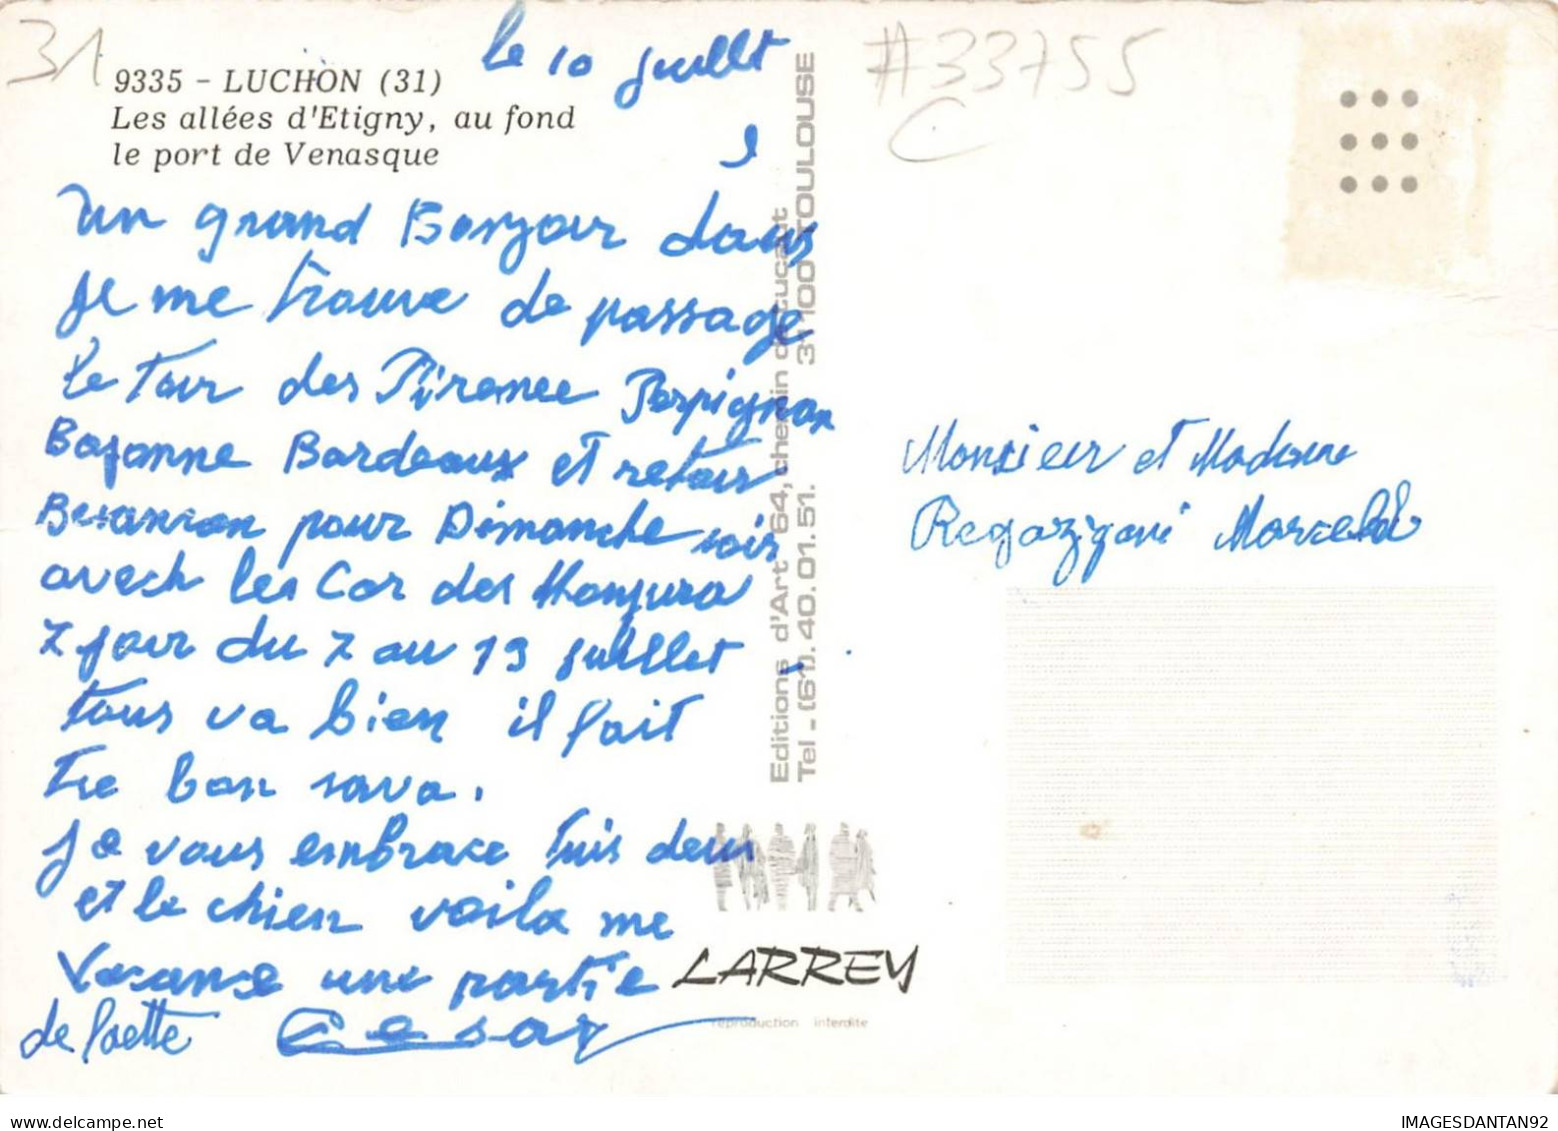 31
#33755
C
9335 - LUCHON (31)
Les allées d'Etigny, au fond
le port de Venasque
le 10 juillet
un grand Bonjour dans
je me trouve de passage
le Tour des Pirenee Perpignan
Bajonne Bordeaux et retour
Besancon pour Dimanche soir
avech les Car des Monjura
7 jour du 7 au 13 juillet
tous va bien il fait
Tre bon sava.
Je vous embrace Tuis deus
et le chien voila me
Vacance une partie
de faette Cesar
Monsieur et Madame
Regazigoni Marcel
Editions d'Art 64, chemin de
Tel - (61). 40. 01. 51. 31100 TOULOUSE
LARREY
reproduction interdite
delcampe.net
IMAGESDANTAN92